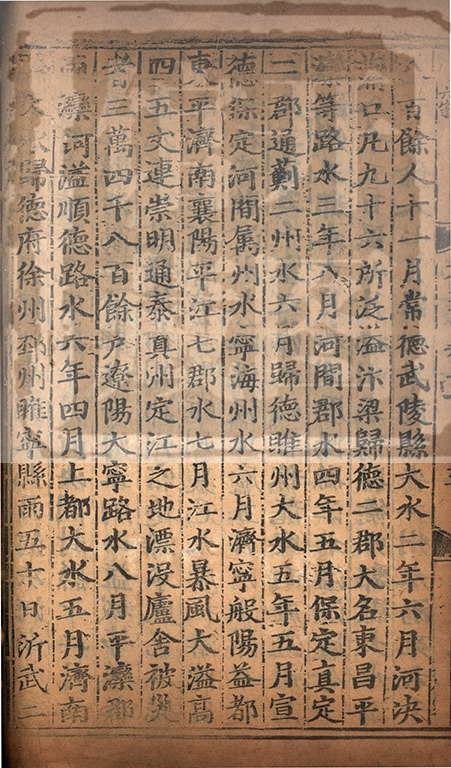 百餘人十一月常德武陵縣大水二年六月河决
蒲口凡九十六所泛溢汴梁歸德二郡大名東昌平
灤等路水三年八月河間郡水四年五月保定真定
二郡通薊二州水六月歸德睢州大水五年五月宣
德保定河間属州水寧海州水六月濟寧般陽益都
東平濟南襄陽平江七郡水七月江水暴風大溢高
四五丈連崇明通泰真州定江之地漂没廬舍被災
者三萬四千八百餘户遼陽大寧路水八月平灤郡
雨灤河溢順德路水六年四月上都大水五月濟南
大水歸德府徐州邳州睢寧縣雨五十日沂武二